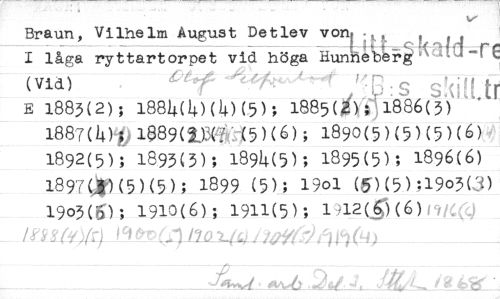 Braun, Vilhelm August Detlev von
Litt-skald-re
I låga ryttartorpet vid höga Hunneberg
(Vid)
Olof Silfverlod
KB:s skill.tr
E 1883(2); 1884(4)(4)(5); 1885(2)(5); 1886(3)
1887(4); 1889(2)(5)(6); 1890(5)(5)(5)(6)
1892(5); 1893(3); 1894(5); 1895(5); 1896(6)
1897(3)(5)(5); 1899 (5); 1901 (5)(5);1903(3)
1903(5); 1910(6); 1911(5); 1912(5)(6)1916(6)
1888(4)(5) 1900(5)1902(6)1904(5)1919(4)
Saml. arb. Del 3, Sthlm 1868